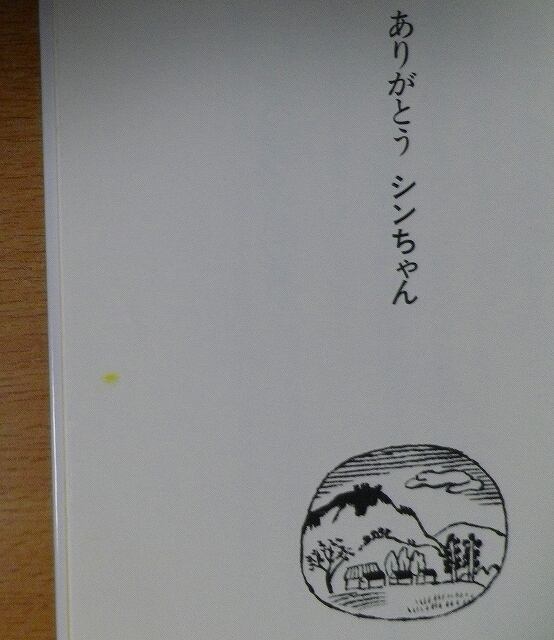 ありがとう シンちゃん